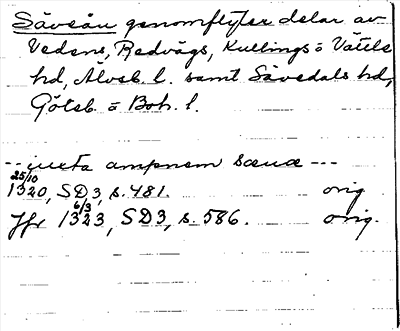 Säveån genomflyter delar av
Vedens, Redvägs, Kullings o Vätele
hd, Älvsb. l. samt Sävedals hd,
Göteb. o Boh. l.
--- iuxta ampnem sæuæ ---
25/10
1320, SD3, s. 481. orig
6/3
Jfr 1323, SD3, s. 586. orig.